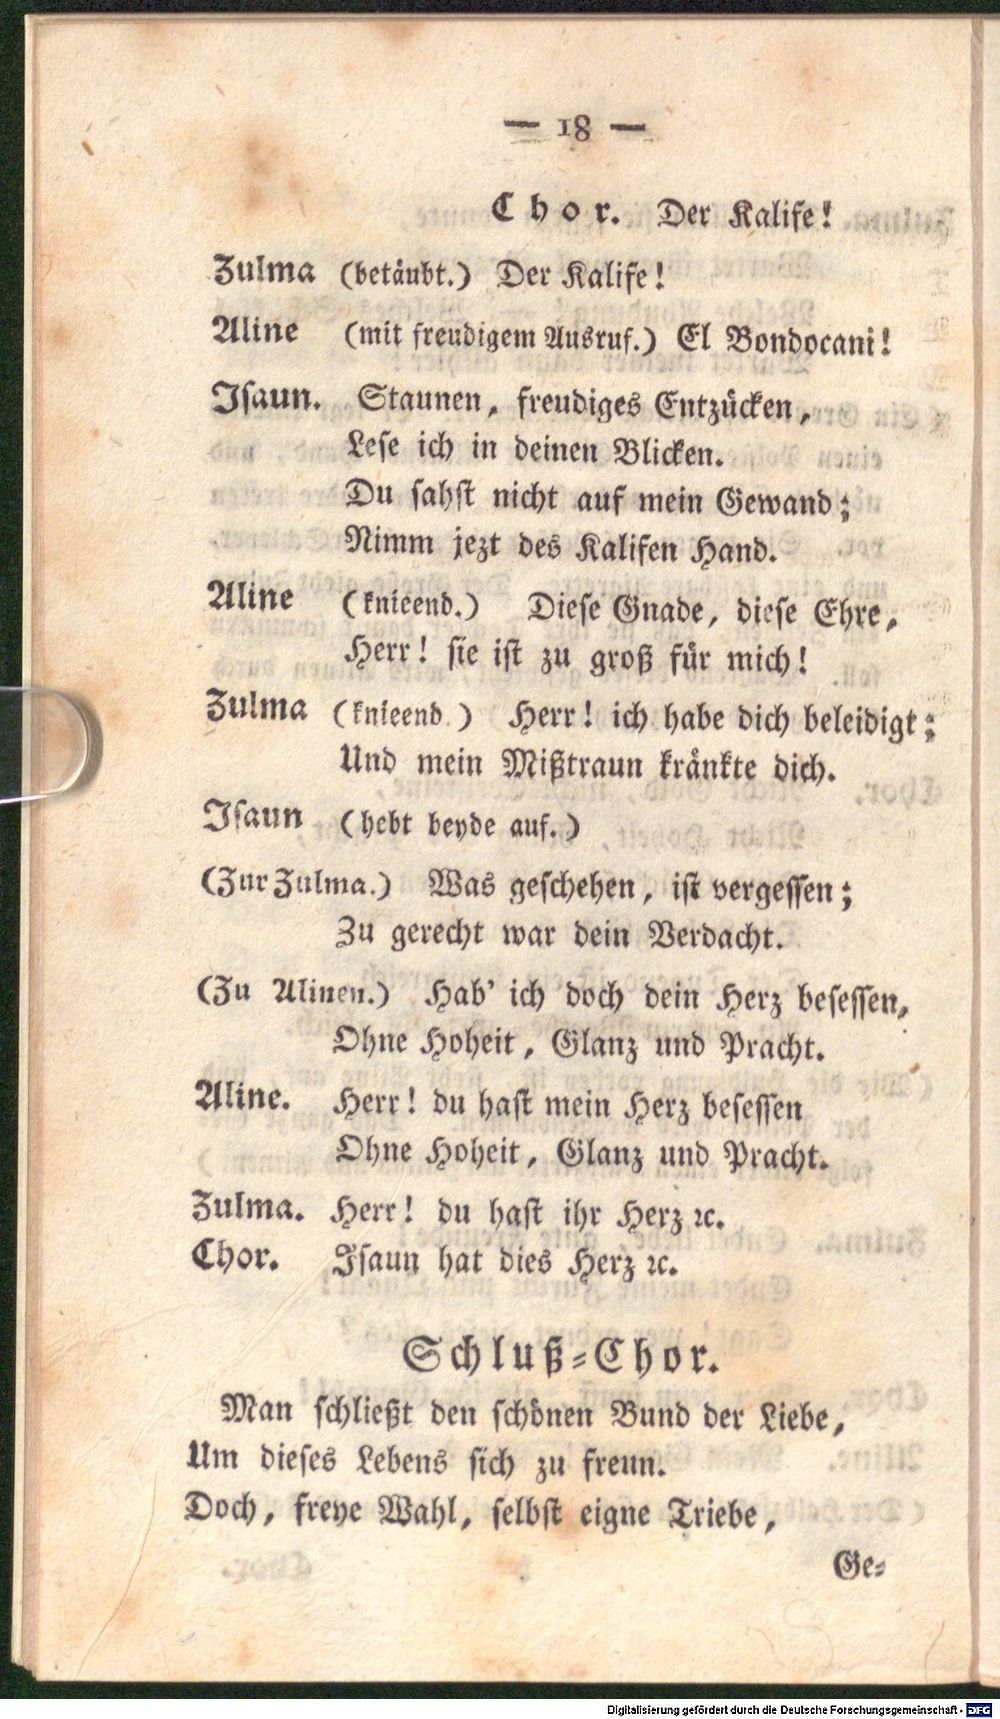 — 18 —
Chor. Der Kalife!
Zulma (betäubt.) Der Kalife!
Aline (mit freudigem Ausruf.) El Bondocani!
Isaun. Staunen, freudiges Entzücken,
Lese ich in deinen Blicken.
Du sahst nicht auf mein Gewand;
Nimm jezt des Kalifen Hand.
Aline (knieend.) Diese Gnade, diese Ehre,
Herr! sie ist zu groß für mich!
Zulma (knieend.) Herr! ich habe dich beleidigt;
Und mein Mißtraun kränkte dich.
Isaun (hebt beyde auf.)
(Zur Zulma.) Was geschehen, ist vergessen;
Zu gerecht war dein Verdacht.
(Zu Alinen.) Hab' ich doch dein Herz besessen,
Ohne Hoheit, Glanz und Pracht.
Aline. Herr! du hast mein Herz besessen
Ohne Hoheit, Glanz und Pracht.
Zulma. Herr! du hast ihr Herz ꝛc.
Chor. Isaun hat dies Herz ꝛc.
Schluß-Chor.
Man schließt den schönen Bund der Liebe,
Um dieses Lebens sich zu freun.
Doch, freye Wahl, selbst eigne Triebe,
Ge-
Digitalisierung gefördert durch die Deutsche Forschungsgemeinschaft - DFG